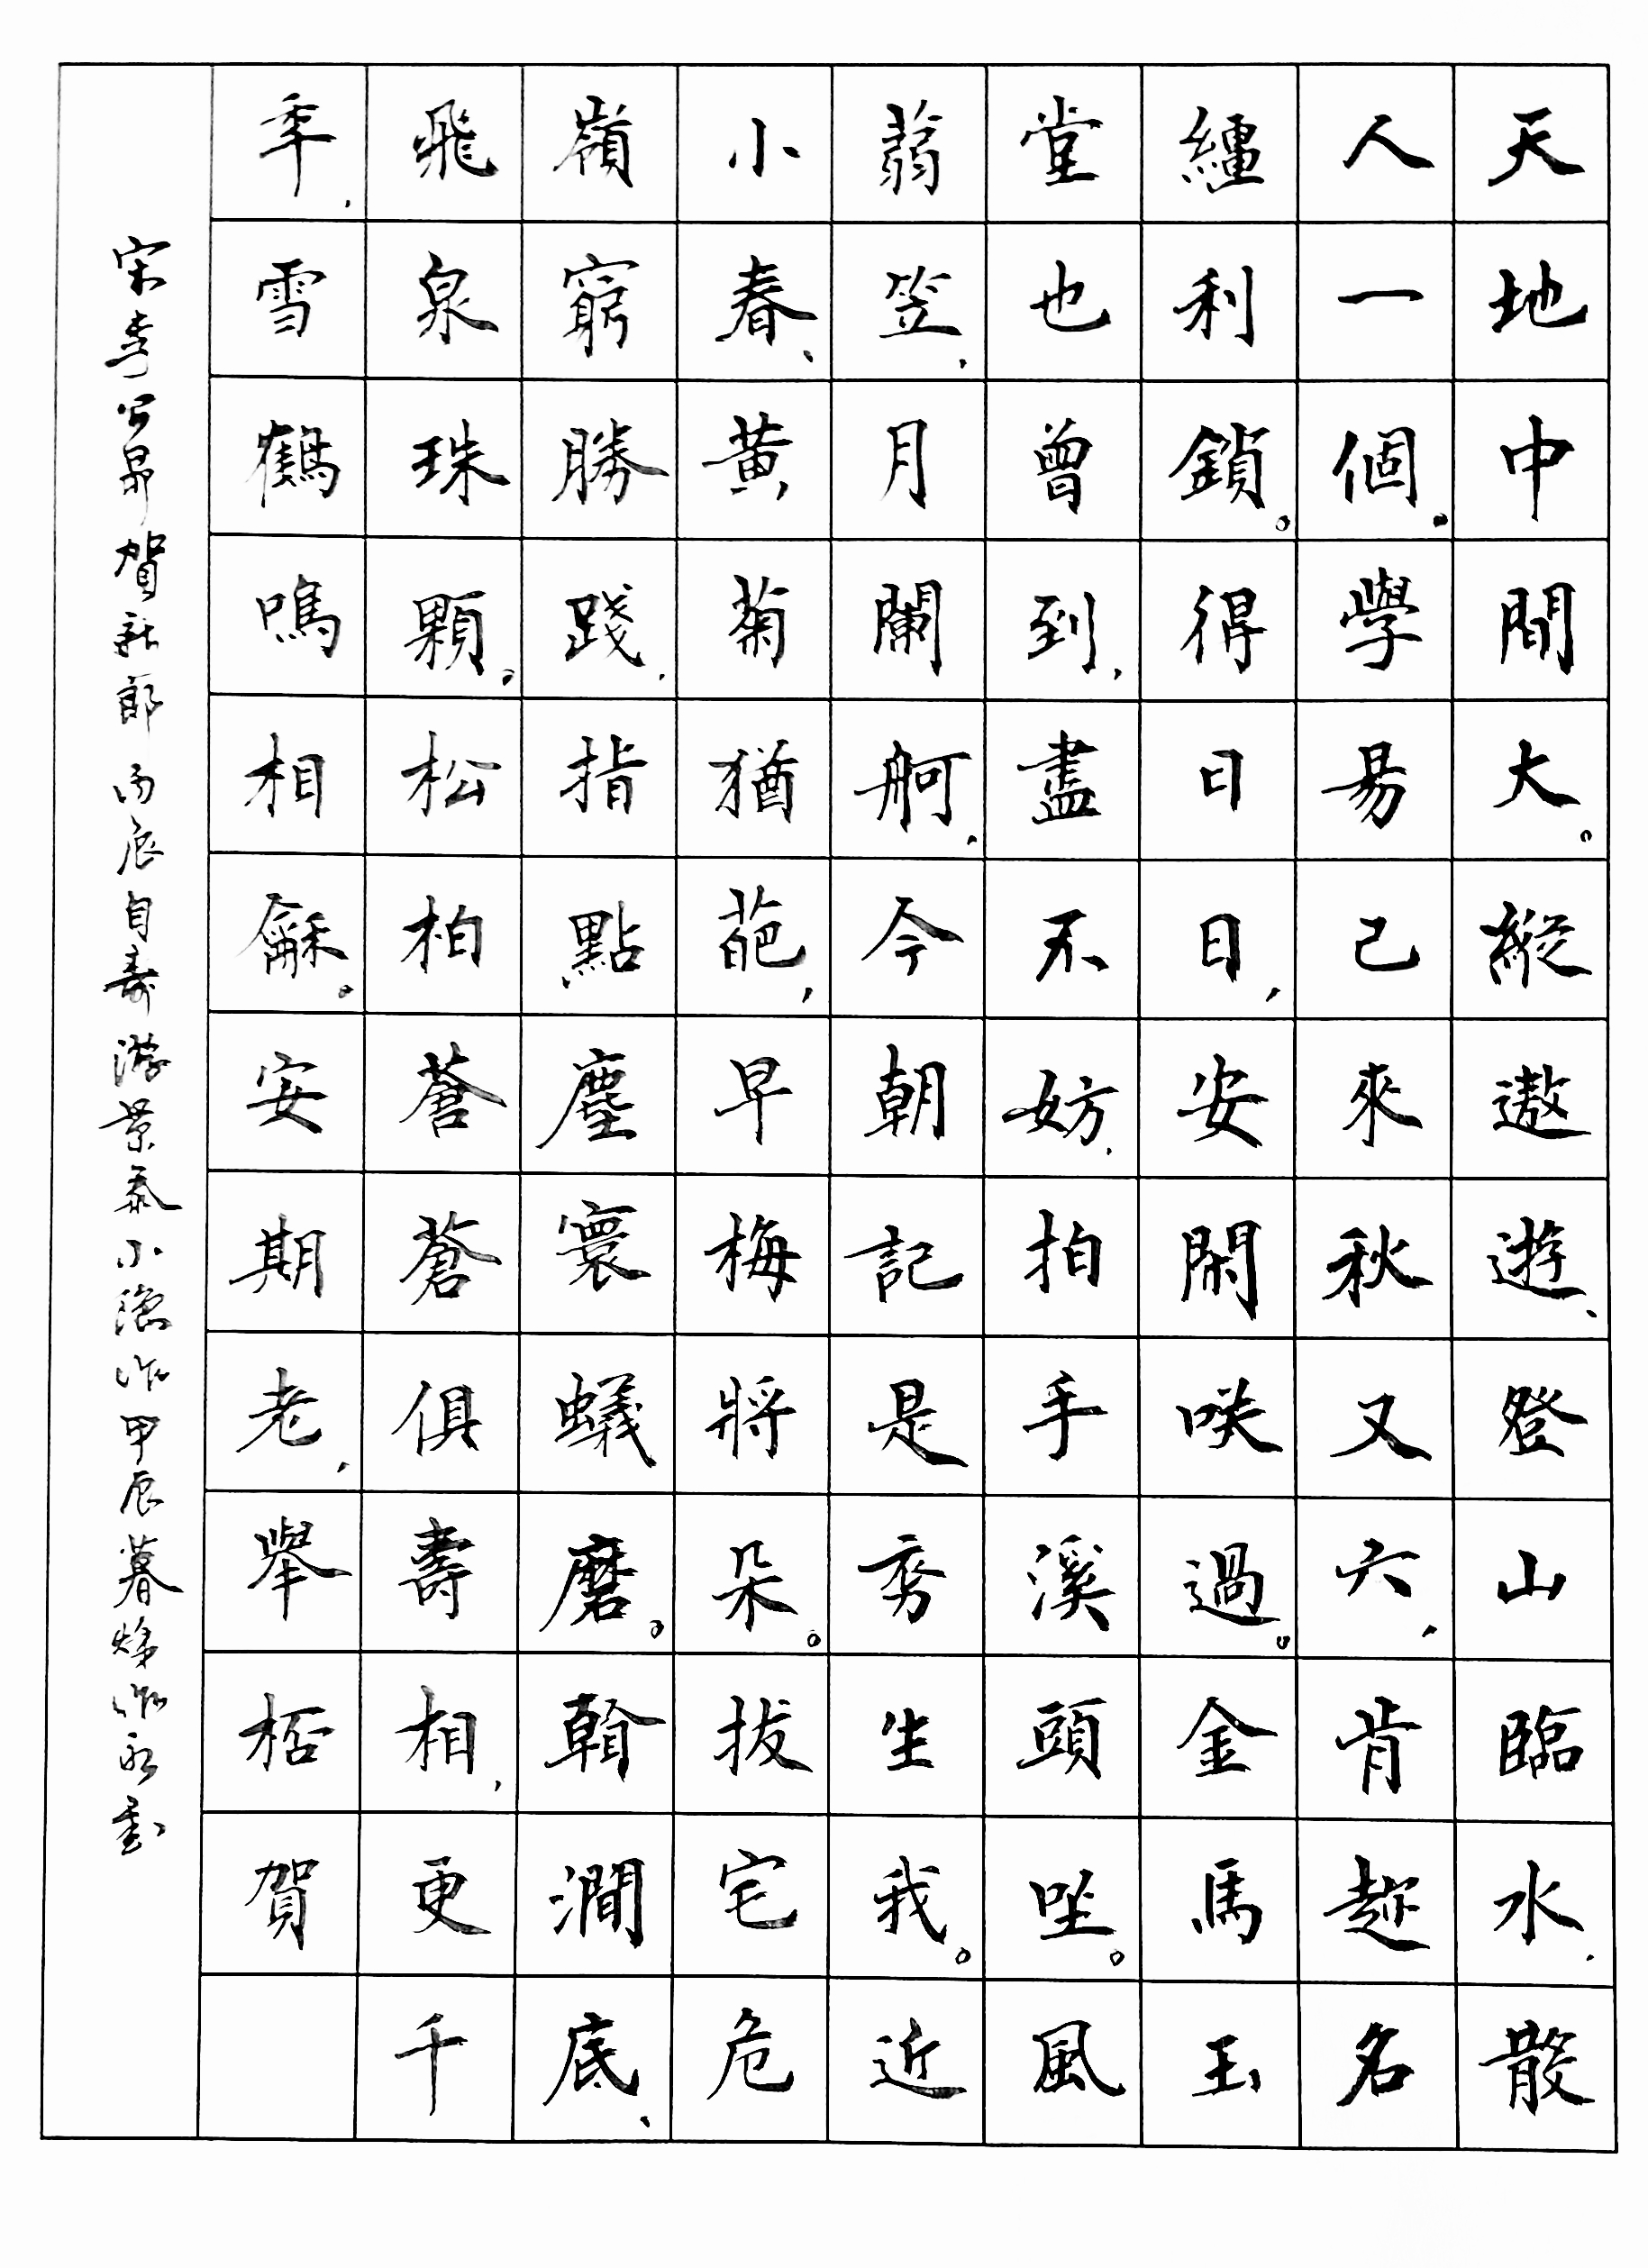 天地中間大。縱遨遊、登山臨水，散
人一個。學易已來秋又六，肯趁名
繮利鎖。得日日，安閑咲過。金馬玉
堂也曾到，盡不妨，拍手溪頭坐。風
蒻笠，月闌舸，今朝記是秀生我。近
小春、黃菊猶葩，早梅將朵。拔宅危
嶺窮勝踐，指點塵寰蟻磨。翰澗底、
飛泉珠顆。松柏蒼蒼俱壽相，更千
年，雪鶴鳴相龢。安期老，舉桮賀
宋李公昴賀新郎丙辰自壽游景泰小隱作甲辰暮煁作永書